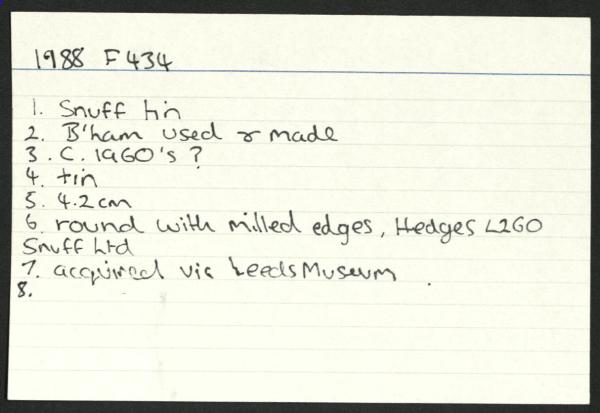 1988 F434
1. Snuff tin
2. B'ham used & made
3. C. 1960's ?
4. tin
5. 4.2cm
6. round with milled edges, Hedges L260
Snuff Ltd
7. acquired via Leeds Museum .
8.